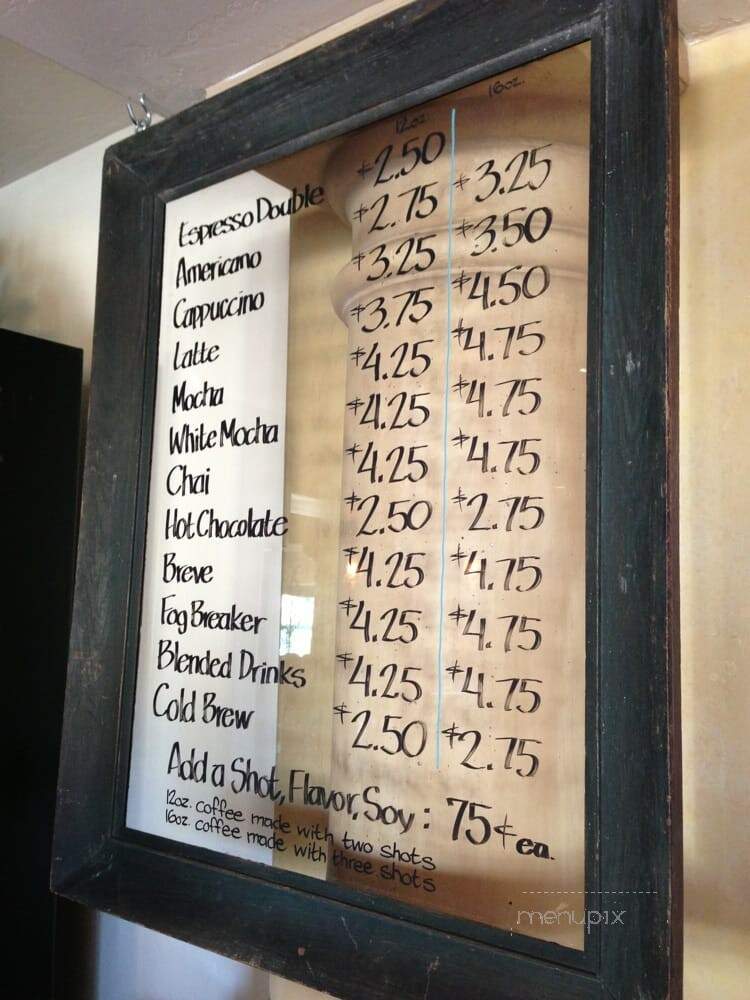 12oz. 16oz.
Espresso Double $2.50
Americano $2.75 $3.25
Cappuccino $3.25 $3.50
Latte $3.75 $4.50
Mocha $4.25 $4.75
White Mocha $4.25 $4.75
Chai $4.25 $4.75
Hot Chocolate $2.50 $2.75
Breve $4.25 $4.75
Fog Breaker $4.25 $4.75
Blended Drinks $4.25 $4.75
Cold Brew $2.50 $2.75
Add a Shot, Flavor, Soy: 75¢ ea.
12oz. coffee made with two shots
16oz. coffee made with three shots
menupix